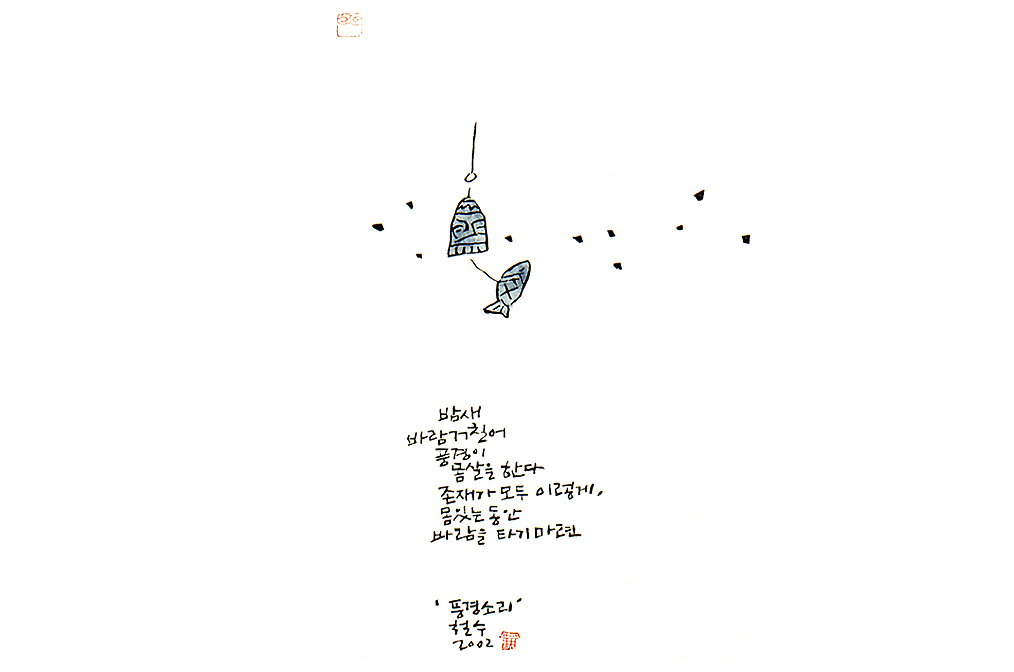 밤새
바람거칠어
풍경이
몸살을 한다
존재가 모두 이렇게,
몸있는동안
바람을 타기마련
'풍경소리'
철수
2002